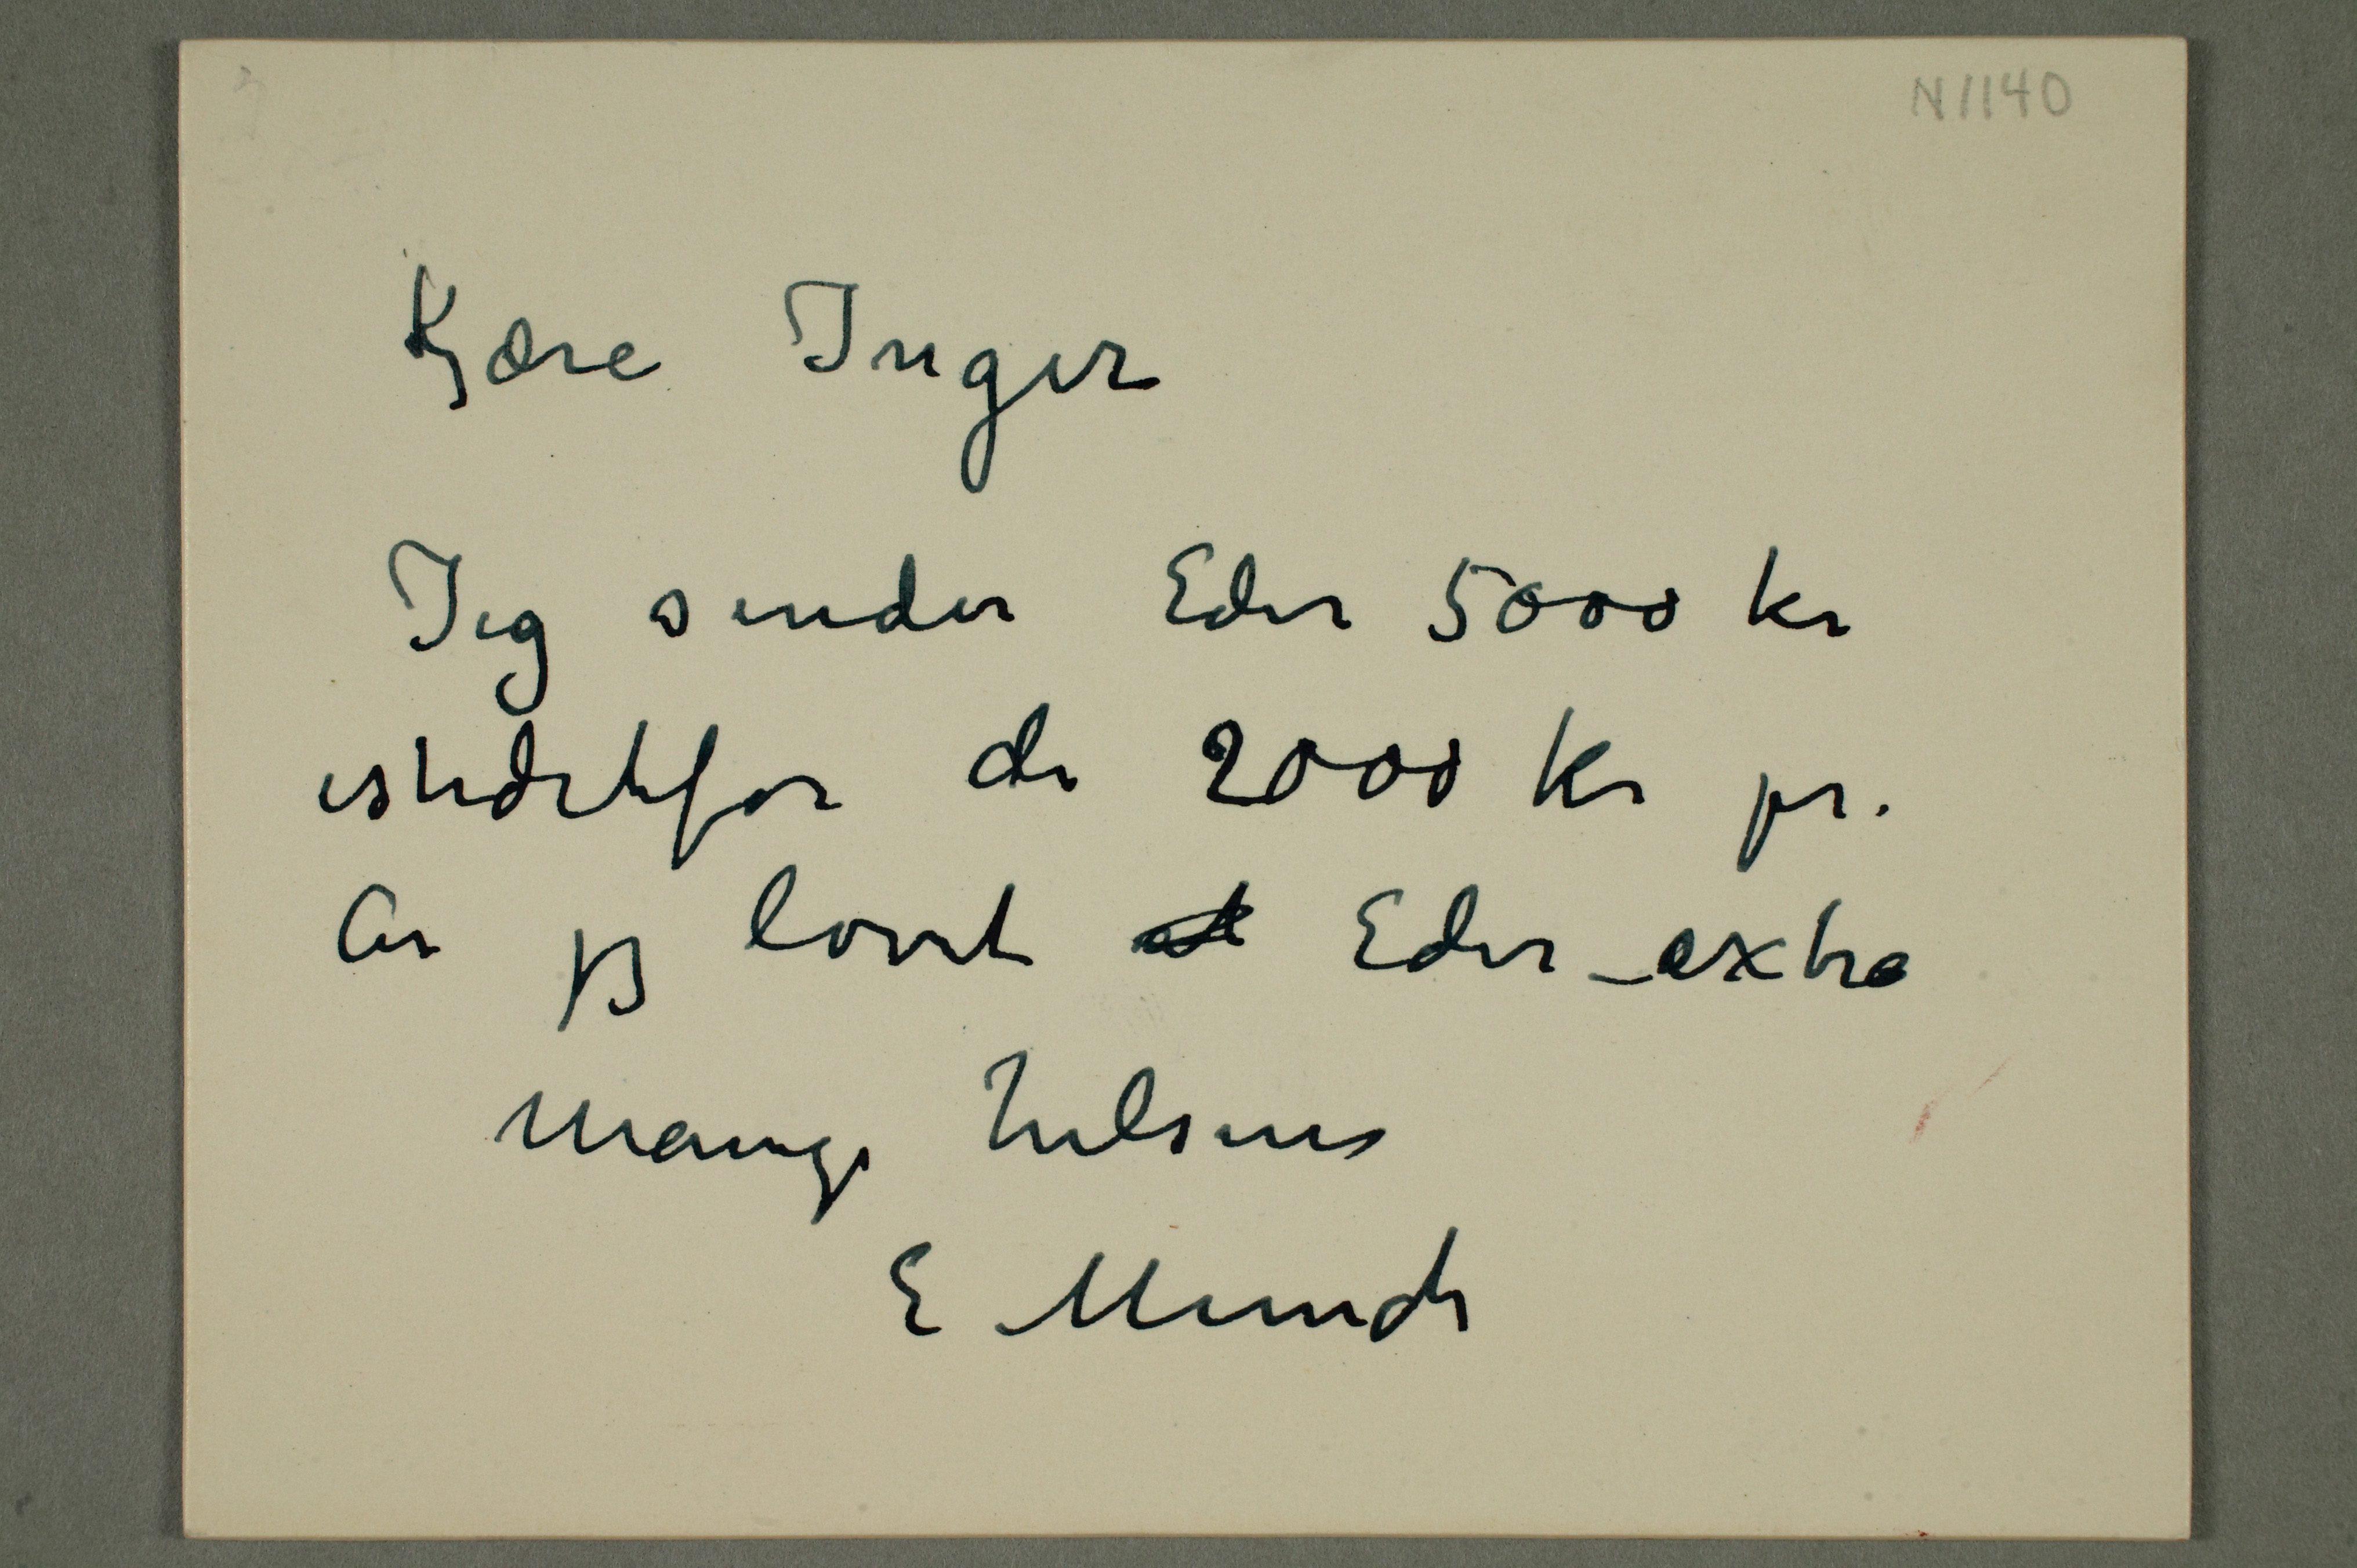 N 1140
Kjære Inger
Jeg sender Eder 5000 kr
istedetfor de 2000 kr pr.
År jeg lovet at Eder – extra
Mange hilsener
E Munch